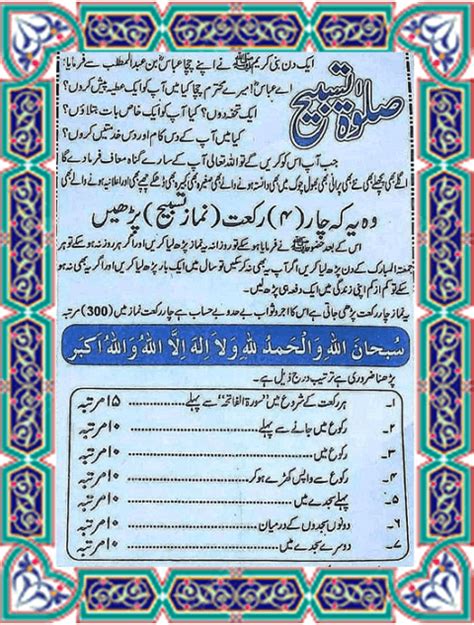 صلوٰۃ تسبیح
ایک دن نبی کریم ﷺ نے اپنے چچا عباسؓ بن عبدالمطلب سے فرمایا:
اے عباسؓ! میرے محترم چچا میں آپ کو ایک عطیہ پیش کروں؟
ایک تحفہ دوں؟ کیا آپ کو ایک خاص بات بتلاؤں؟
کیا میں آپ کے دس کام اور دس خدمتیں کروں؟
جب آپ اس کو کریں گے تو اللہ تعالیٰ آپ کے سارے گناہ معاف فرما دے گا
اگلے بھی پچھلے بھی نئے بھی پرانی بھی بھول چوک میں بھی دانستہ ہونے والے بھی صغیرہ بھی کبیرہ بھی ڈھکے چھپے بھی اور اعلانیہ ہونے والے بھی
وہ یہ کہ چار (۴) رکعت (نماز تسبیح) پڑھیں
اس کے بعد حضور ﷺ نے فرمایا ہو سکے تو روزانہ یہ نماز پڑھ لیا کریں اور اگر ہر روز نہ ہو سکے تو ہر
جمعۃ المبارک کے دن پڑھ لیا کریں اگر آپ یہ بھی نہ کر سکیں تو سال میں ایک بار پڑھ لیا کریں اور اگر یہ بھی نہ ہو
سکے تو کم از کم اپنی زندگی میں ایک دفعہ ہی پڑھ لیں۔
یہ نماز چار رکعت پڑھی جاتی ہے اس کا اجر و ثواب بے حد و بے حساب ہے چار رکعت نماز میں (300) مرتبہ
سُبحَانَ اللهِ وَالْحَمدُ لِلهِ وَلاَ اِلهَ اِلَّا اللهُ وَاللهُ اَکبَر
پڑھنا ضروری ہے ترتیب درج ذیل ہے۔
۱۔ ہر رکعت کے شروع میں "سورۃ الفاتحہ" سے پہلے ۱۵ مرتبہ
۲۔ رکوع میں جانے سے پہلے ۱۰ مرتبہ
۳۔ رکوع میں ۱۰ مرتبہ
۴۔ رکوع سے واپس کھڑے ہو کر ۱۰ مرتبہ
۵۔ پہلے سجدے میں ۱۰ مرتبہ
۶۔ دونوں سجدوں کے درمیان ۱۰ مرتبہ
۷۔ دوسرے سجدے میں ۱۰ مرتبہ